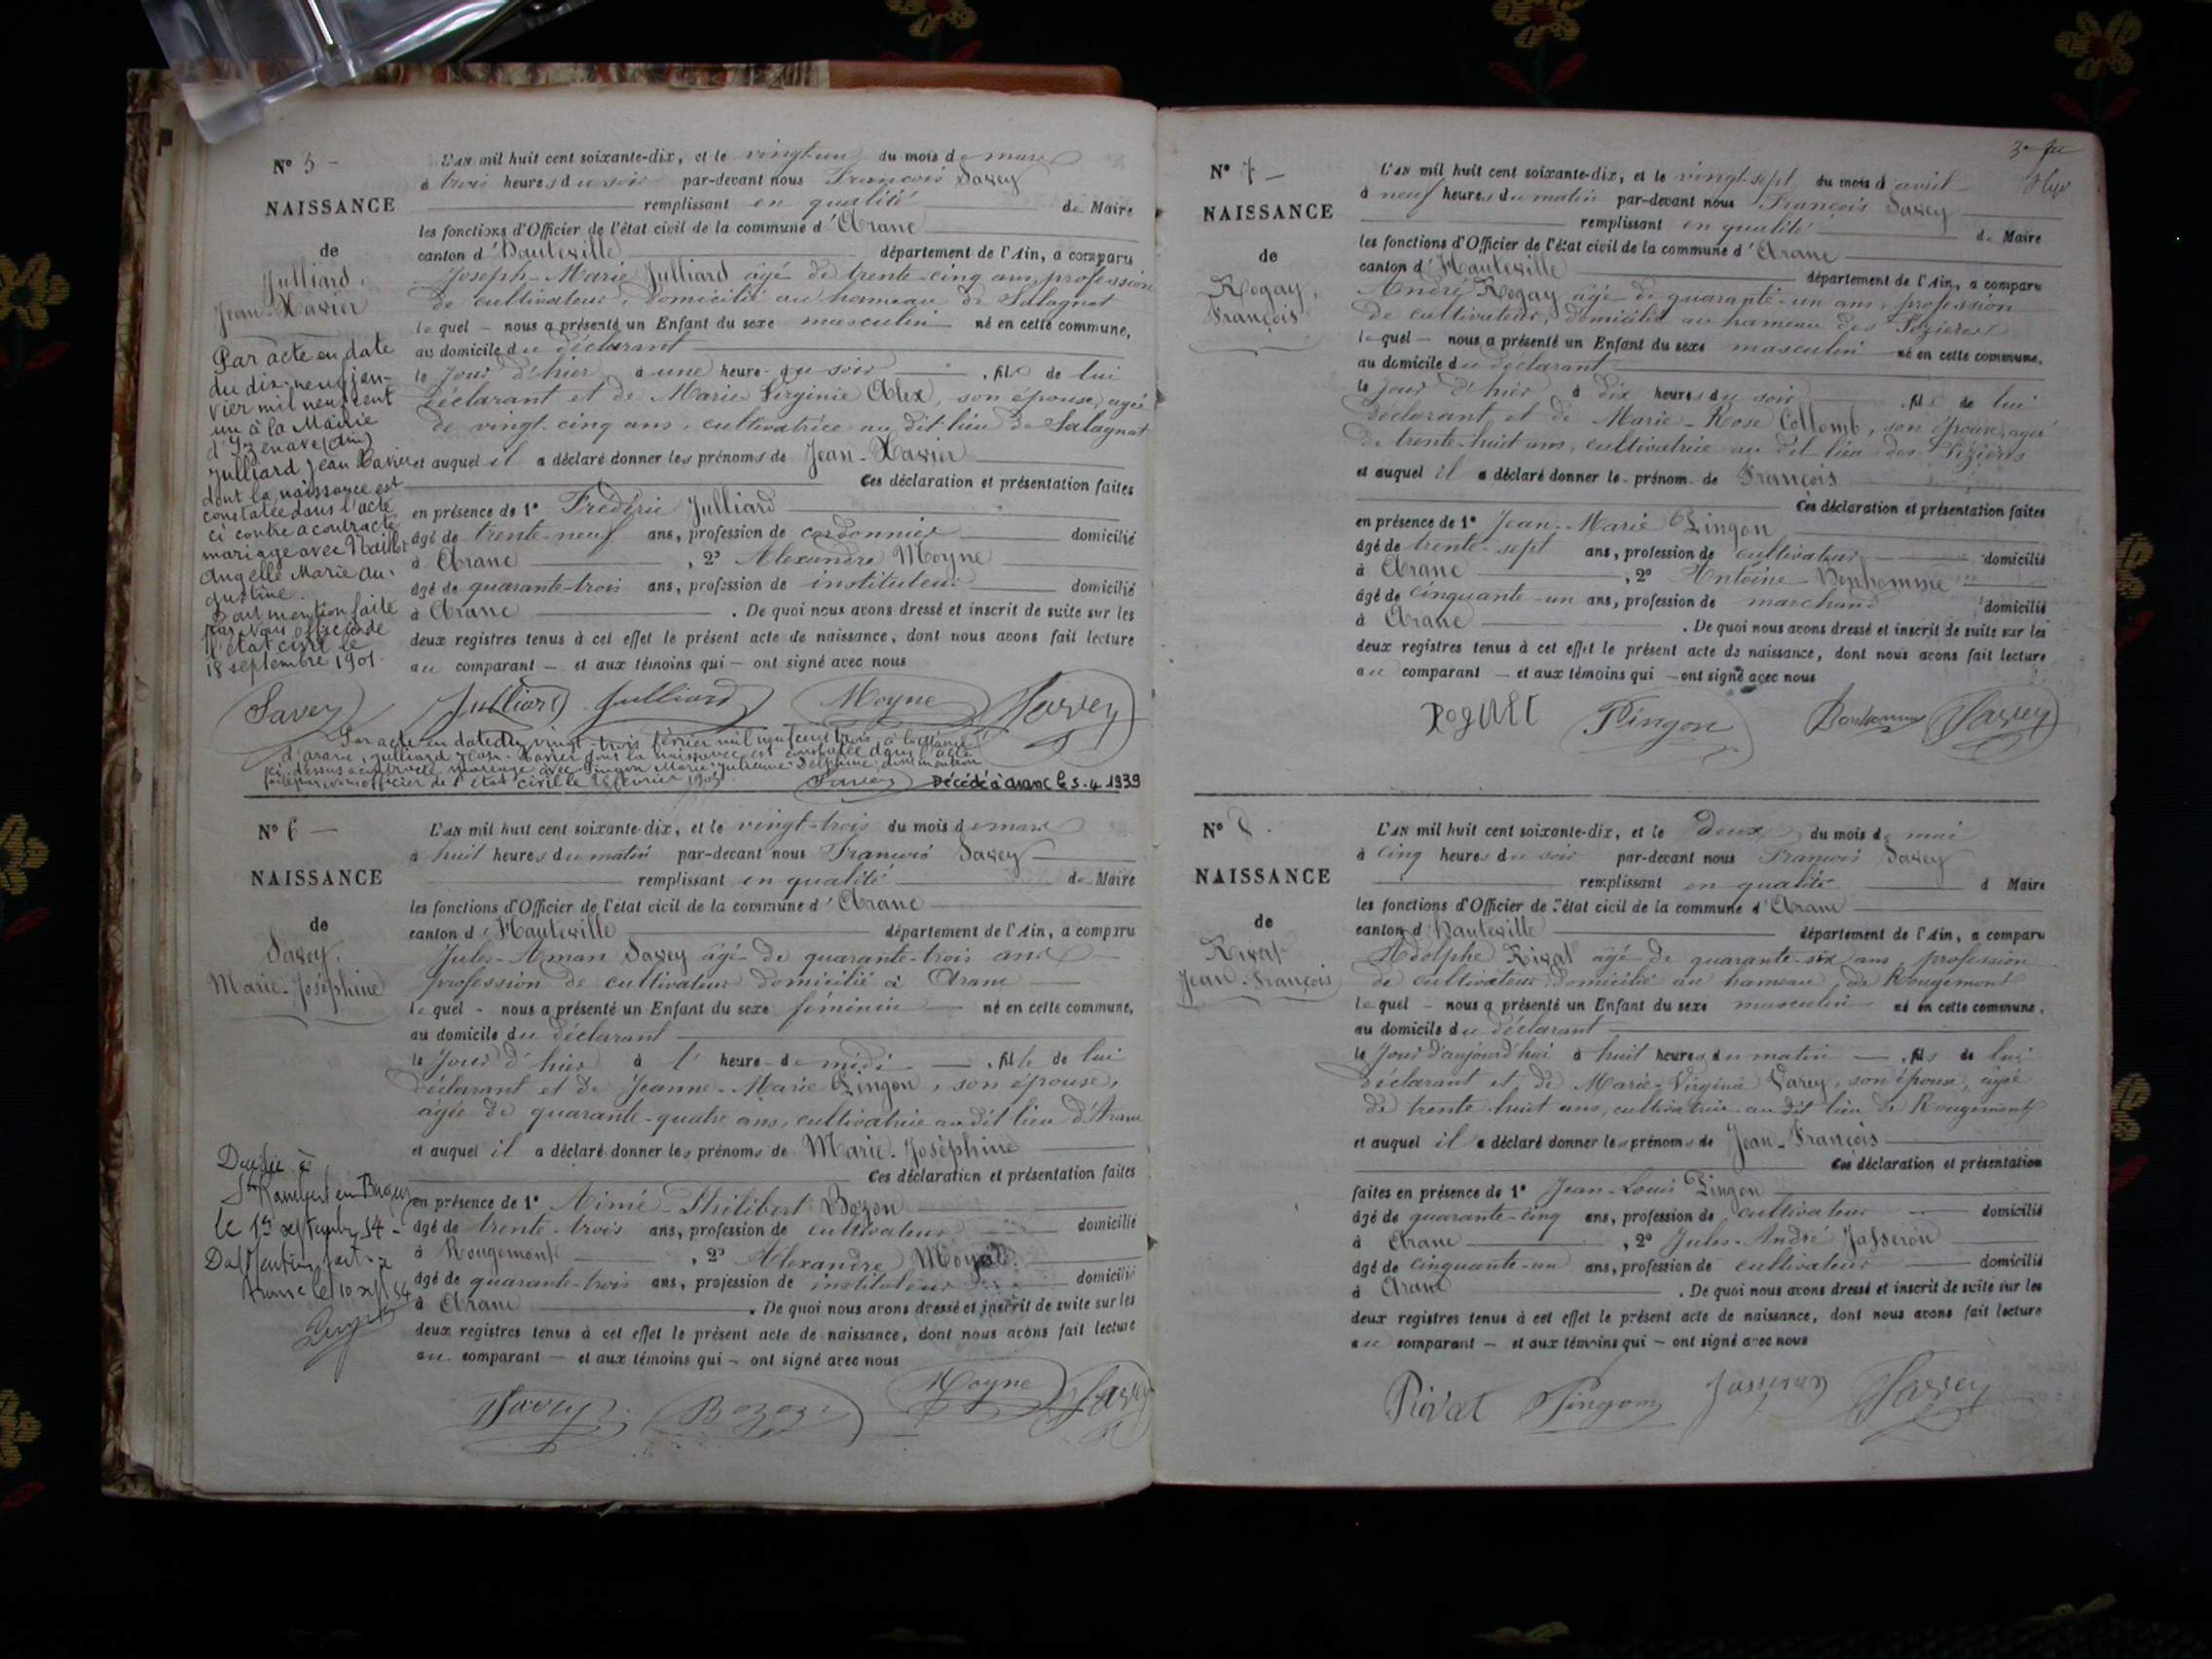 N° 5 -
NAISSANCE
de
Julliard,
Jean-Xavier
Par acte en date
du dix-neuf jan-
vier mil neuf cent
un à la Mairie
d'Izenave (Ain)
Julliard Jean Xavier
dont la naissance est
constatée dans l'acte
ci contre a contracté
mariage avec Maillet
Angelle Marie Au-
gustine.
Dont mention faite
par Nous officier de
l'état civil le
18 septembre 1901.
L'AN mil huit cent soixante-dix, et le vingt-un du mois de mars
à trois heures du soir par-devant nous François Savey
remplissant en qualité de Maire
les fonctions d'Officier de l'état civil de la commune d'Aranc
canton d'Hauteville département de l'Ain, a comparu
Joseph-Marie Julliard âgé de trente-cinq ans, profession
de cultivateur, domicilié au hameau de Salagnat
lequel - nous a présenté un Enfant du sexe masculin né en cette commune,
au domicile du déclarant
le jour d'hier à une heure du soir, fils de lui
déclarant et de Marie Virginie Alex, son épouse, agée
de vingt-cinq ans, cultivatrice au dit lieu de Salagnat
et auquel il a déclaré donner les prénoms de Jean-Xavier
Ces déclaration et présentation faites
en présence de 1° Frédéric Julliard
âgé de trente-neuf ans, profession de cordonnier domicilié
à Aranc, 2° Alexandre Moyne
âgé de quarante-trois ans, profession de instituteur domicilié
à Aranc. De quoi nous avons dressé et inscrit de suite sur les
deux registres tenus à cet effet le présent acte de naissance, dont nous avons fait lecture
au comparant - et aux témoins qui - ont signé avec nous
Savey Julliard Julliard Moyne Savey
Par acte en date du vingt-trois février mil neuf cent trois à la Mairie
d'Aranc, Julliard Jean-Xavier dont la naissance est constatée dans l'acte
ci-dessus a contracté mariage avec Pingon Marie Delphine dont mention
faite par nous officier de l'état civil le février 1903.
Savey Décédé à Aranc le 5-4 1939
N° 6 -
NAISSANCE
de
Savey,
Marie-Joséphine
Décédée à
St Rambert en Bugey
le septembre 54 -
Aranc le 10 sept 54
L'AN mil huit cent soixante-dix, et le vingt-trois du mois de mars
à huit heures du matin par-devant nous François Savey
remplissant en qualité de Maire
les fonctions d'Officier de l'état civil de la commune d'Aranc
canton d'Hauteville département de l'Ain, a comparu
Jules-Aman Savey âgé de quarante-trois ans
profession de cultivateur domicilié à Aranc
lequel - nous a présenté un Enfant du sexe féminin né en cette commune,
au domicile du déclarant
le jour d'hier à l'heure de midi, fille de lui
déclarant et de Jeanne-Marie Pingon, son épouse,
agée de quarante-quatre ans, cultivatrice au dit lieu d'Aranc
et auquel il a déclaré donner les prénoms de Marie-Joséphine
Ces déclaration et présentation faites
en présence de 1° Aimé-Philibert Bozon
âgé de trente-trois ans, profession de cultivateur domicilié
à Rougemont, 2° Alexandre Moyne
âgé de quarante-trois ans, profession de instituteur domicilié
à Aranc. De quoi nous avons dressé et inscrit de suite sur les
deux registres tenus à cet effet le présent acte de naissance, dont nous avons fait lecture
au comparant - et aux témoins qui - ont signé avec nous
Savey Bozon Moyne Savey
N° 7 -
NAISSANCE
de
Rogay,
François
L'AN mil huit cent soixante-dix, et le vingt-sept du mois d'avril
à neuf heures du matin par-devant nous François Savey
remplissant en qualité de Maire
les fonctions d'Officier de l'état civil de la commune d'Aranc
canton d'Hauteville département de l'Ain, a comparu
André Rogay âgé de quarante-un ans, profession
de cultivateur, domicilié au hameau des Pézières
lequel - nous a présenté un Enfant du sexe masculin né en cette commune,
au domicile du déclarant
le jour d'hier à dix heures du soir, fils de lui
déclarant et de Marie-Rose Collomb, son épouse, agée
de trente-huit ans, cultivatrice au dit lieu des Pézières
et auquel il a déclaré donner le prénom de François
Ces déclaration et présentation faites
en présence de 1° Jean-Marie Pingon
âgé de trente-sept ans, profession de cultivateur domicilié
à Aranc, 2° Antoine Bonhomme
âgé de cinquante-un ans, profession de marchand domicilié
à Aranc. De quoi nous avons dressé et inscrit de suite sur les
deux registres tenus à cet effet le présent acte de naissance, dont nous avons fait lecture
au comparant - et aux témoins qui - ont signé avec nous
Pingon Bonhomme Savey
N° 8.
NAISSANCE
de
Rivat
Jean-François
L'AN mil huit cent soixante-dix, et le deux du mois de mai
à cinq heures du soir par-devant nous François Savey
remplissant en qualité d Maire
les fonctions d'Officier de l'état civil de la commune d'Aranc
canton d'Hauteville département de l'Ain, a comparu
Adolphe Rivat âgé de quarante-six ans, profession
de cultivateur domicilié au hameau de Rougemont
lequel - nous a présenté un Enfant du sexe masculin né en cette commune,
au domicile du déclarant
le jour d'aujourd'hui à huit heures du matin -, fils de lui
déclarant et de Marie-Virginie Varey, son épouse, agée
de trente-huit ans, cultivatrice au dit lieu de Rougemont
et auquel il a déclaré donner les prénoms de Jean-François
Ces déclaration et présentation
faites en présence de 1° Jean-Louis Pingon
âgé de quarante-cinq ans, profession de cultivateur domicilié
à Aranc, 2° Jules-André Jasseron
âgé de cinquante-un ans, profession de cultivateur domicilié
à Aranc. De quoi nous avons dressé et inscrit de suite sur les
deux registres tenus à cet effet le présent acte de naissance, dont nous avons fait lecture
au comparant - et aux témoins qui - ont signé avec nous
Rivat Pingon Jasseron Savey